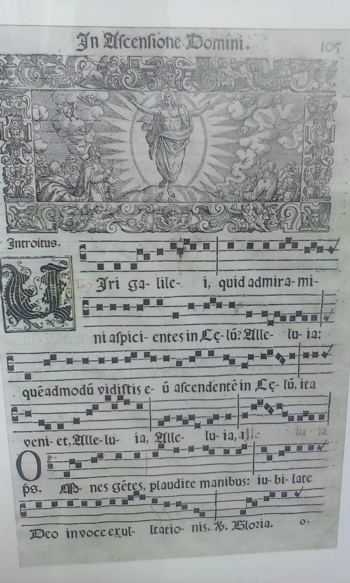 In Ascensione Domini.
105
Introitus.
VIri ga- lile- i, quid admira- mi-
ni aspici- entes in Cę- lū? Alle- lu- ia:
quēadmodū vidistis e- ū ascendentē in Cę- lū, ita
veni- et, Alle- lu- ia, Alle- lu- ia, alle- lu- ia
ps. OMnes gētes, plaudite manibus: iu- bi- late
Deo in voce exul- ltatio- nis. ℣. Gloria. o.